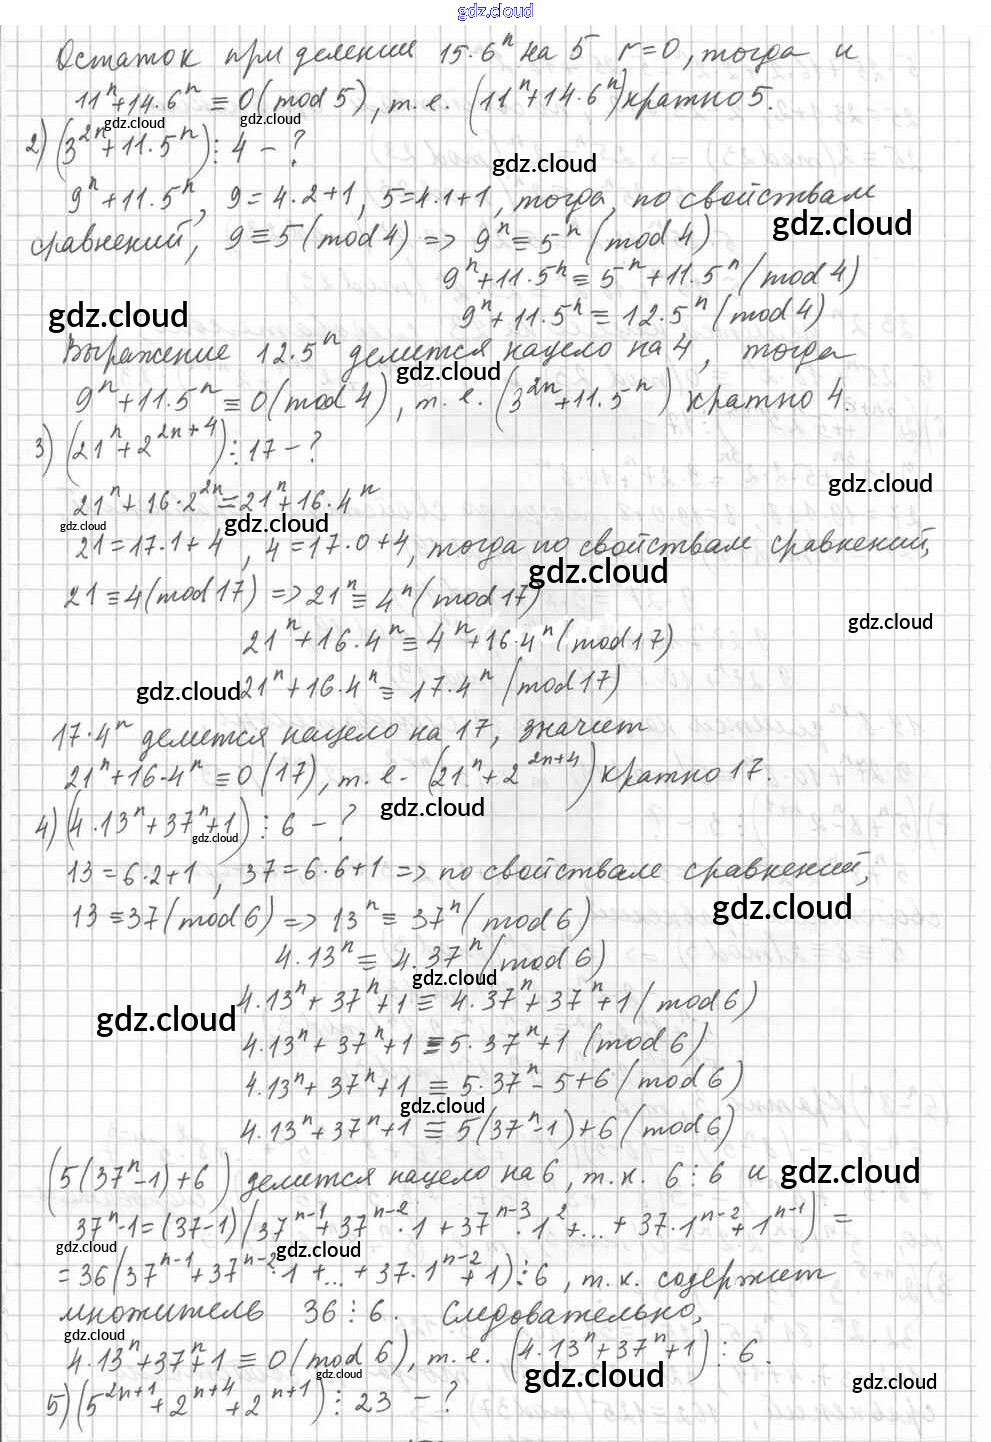 gdz.cloud
Остаток при делении 15·6ⁿ на 5 r=0, тогда и
11ⁿ+14·6ⁿ ≡ 0 (mod 5), т.е. (11ⁿ+14·6ⁿ) кратно 5.
gdz.cloud gdz.cloud
2) (3²ⁿ+11·5ⁿ) ⋮ 4 - ?
gdz.cloud
9ⁿ+11·5ⁿ, 9=4·2+1, 5=4·1+1, тогда, по свойствам
gdz.cloud
сравнений, 9≡5 (mod 4) => 9ⁿ≡5ⁿ (mod 4)
9ⁿ+11·5ⁿ≡5ⁿ+11·5ⁿ (mod 4)
gdz.cloud
9ⁿ+11·5ⁿ≡12·5ⁿ (mod 4)
Выражение 12·5ⁿ делится нацело на 4, тогда
gdz.cloud
9ⁿ+11·5ⁿ≡0 (mod 4), т.е. (3²ⁿ+11·5ⁿ) кратно 4.
3) (21ⁿ+2²ⁿ⁺⁴) ⋮ 17 - ?
gdz.cloud
21ⁿ+16·2²ⁿ=21ⁿ+16·4ⁿ
gdz.cloud gdz.cloud
21=17·1+4, 4=17·0+4, тогда по свойствам сравнений,
gdz.cloud
21≡4 (mod 17) => 21ⁿ≡4ⁿ (mod 17)
gdz.cloud
21ⁿ+16·4ⁿ≡4ⁿ+16·4ⁿ (mod 17)
gdz.cloud
21ⁿ+16·4ⁿ≡17·4ⁿ (mod 17)
17·4ⁿ делится нацело на 17, значит
21ⁿ+16·4ⁿ≡0 (17), т.е. (21ⁿ+2²ⁿ⁺⁴) кратно 17.
gdz.cloud
4) (4·13ⁿ+37ⁿ+1) ⋮ 6 - ?
gdz.cloud
13=6·2+1, 37=6·6+1 => по свойствам сравнений,
13≡37 (mod 6) => 13ⁿ≡37ⁿ (mod 6)
gdz.cloud
4·13ⁿ≡4·37ⁿ (mod 6)
gdz.cloud
4·13ⁿ+37ⁿ+1≡4·37ⁿ+37ⁿ+1 (mod 6)
gdz.cloud
4·13ⁿ+37ⁿ+1≡5·37ⁿ+1 (mod 6)
4·13ⁿ+37ⁿ+1≡5·37ⁿ-5+6 (mod 6)
gdz.cloud
4·13ⁿ+37ⁿ+1≡5(37ⁿ-1)+6 (mod 6)
(5(37ⁿ-1)+6) делится нацело на 6, т.к. 6⋮6 и
gdz.cloud
37ⁿ-1=(37-1)(37ⁿ⁻¹+37ⁿ⁻²·1+37ⁿ⁻³·1²+...+37·1ⁿ⁻²+1ⁿ⁻¹)=
gdz.cloud gdz.cloud
=36(37ⁿ⁻¹+37ⁿ⁻²·1+...+37·1ⁿ⁻²+1)⋮6, т.к. содержит
множитель 36⋮6. Следовательно,
gdz.cloud
4·13ⁿ+37ⁿ+1≡0 (mod 6), т.е. (4·13ⁿ+37ⁿ+1)⋮6.
gdz.cloud gdz.cloud gdz.cloud
5) (5²ⁿ⁺¹+2ⁿ⁺⁴+2ⁿ⁺¹) ⋮ 23 - ?